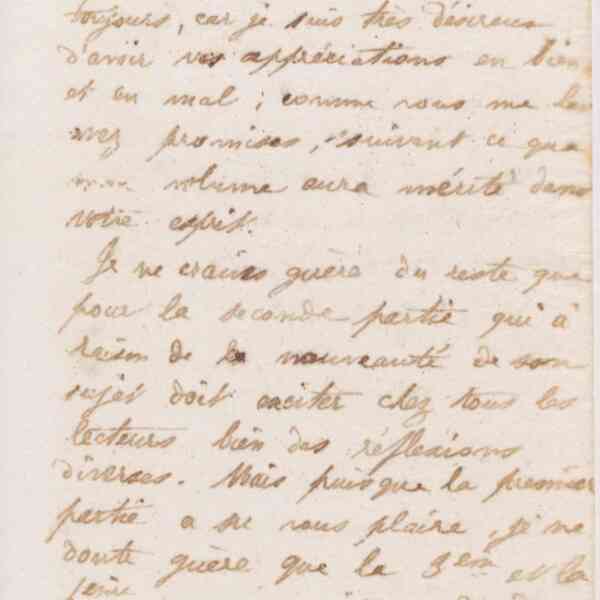 toujours, car je suis très désireux
d'avoir vos appréciations en bien
et en mal ; comme vous me les
avez promises, suivant ce que
mon volume aura mérité dans
votre esprit.
Je ne crains guère du reste que
pour la seconde partie qui à
raison de la nouveauté de son
sujet doit exciter chez tous les
lecteurs bien des réflexions
diverses. Mais puisque la première
partie a su vous plaire, je ne
doute guère que la 3eme et la